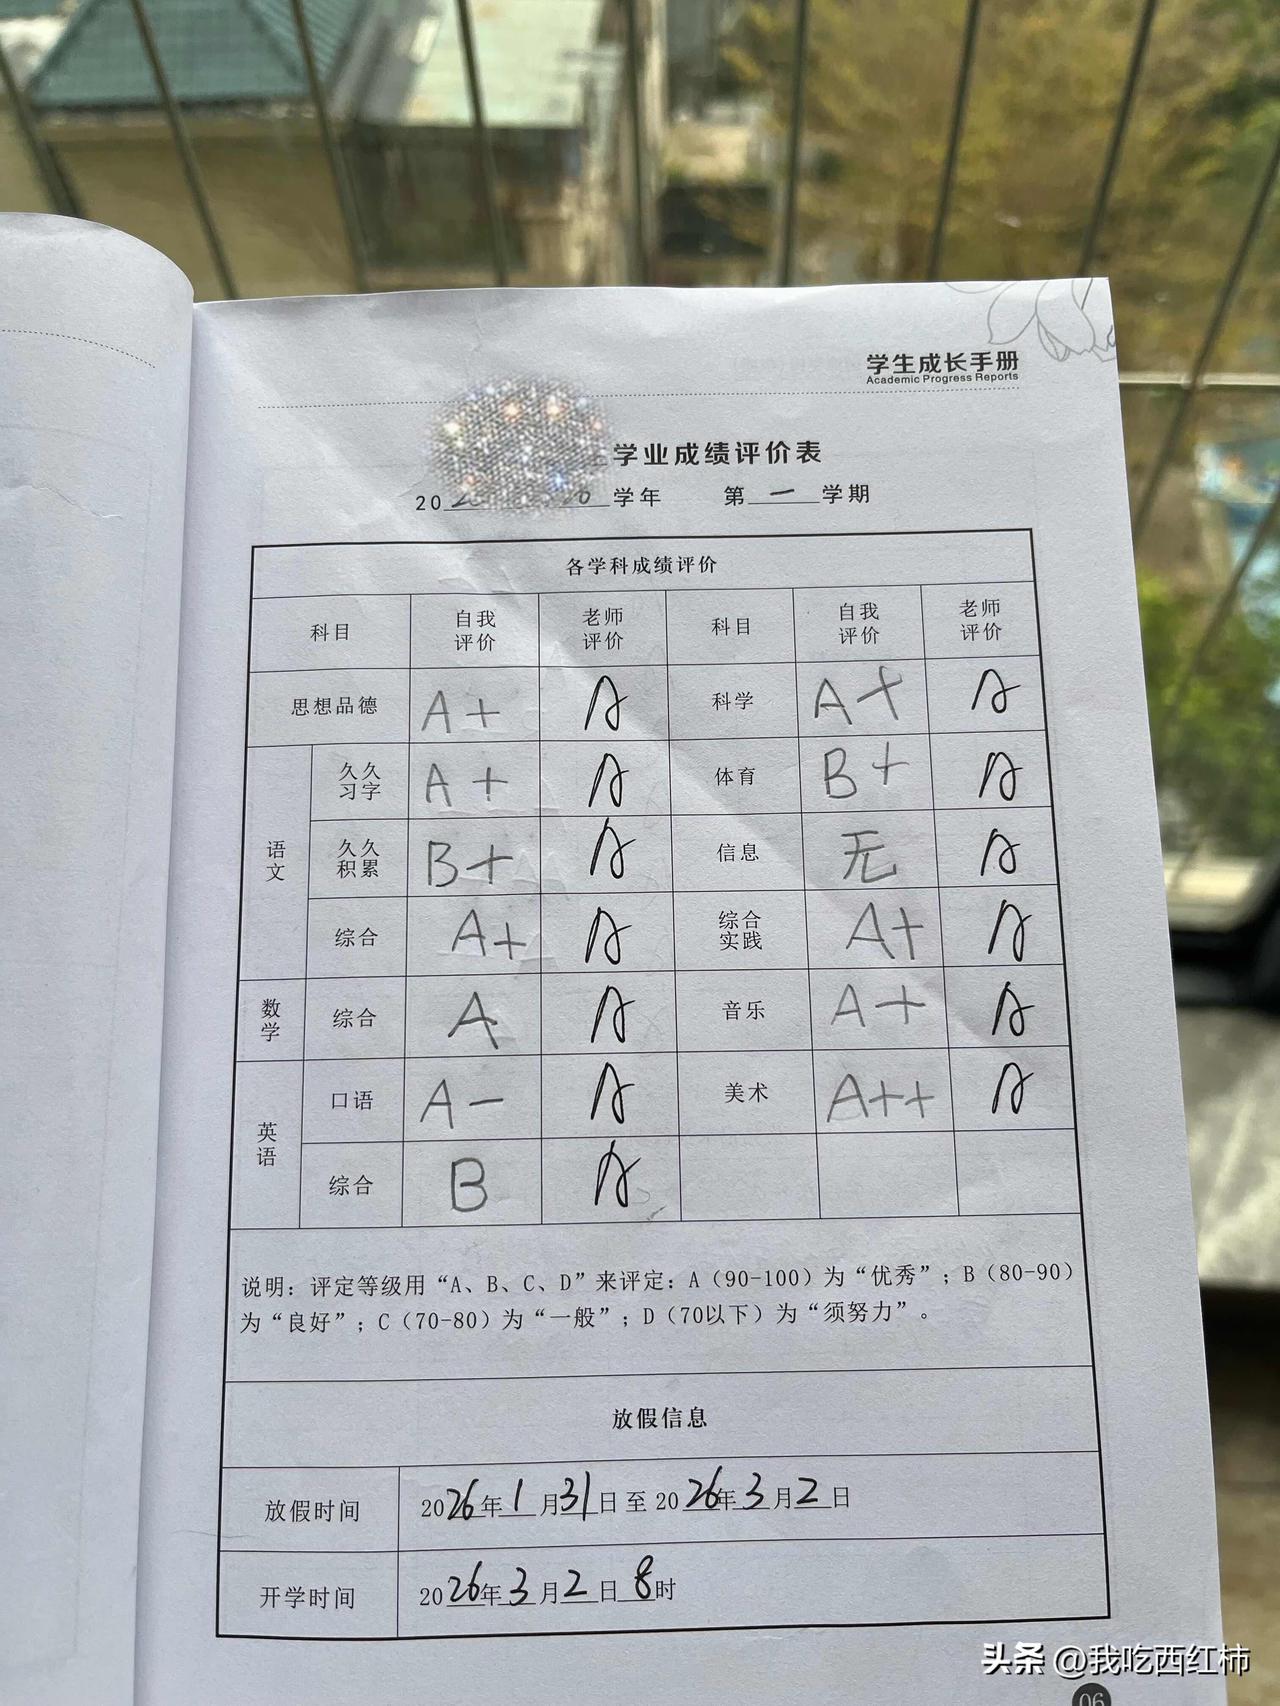 学生成长手册
Academic Progress Reports
学业成绩评价表
20 学年 第一学期
各学科成绩评价
科目 自我评价 老师评价 科目 自我评价 老师评价
思想品德 A+ A 科学 A+ A
语文 久久习字 A+ A 体育 B+ A
久久积累 B+ A 信息 无 A
综合 A+ A 综合实践 A+ A
数学 综合 A A 音乐 A+ A
英语 口语 A- A 美术 A++ A
综合 B A
说明：评定等级用“A、B、C、D”来评定：A（90-100）为“优秀”；B（80-90）
为“良好”；C（70-80）为“一般”；D（70以下）为“须努力”。
放假信息
放假时间 2026年1月31日至2026年3月2日
开学时间 2026年3月2日8时
06
头条 @我吃西红柿